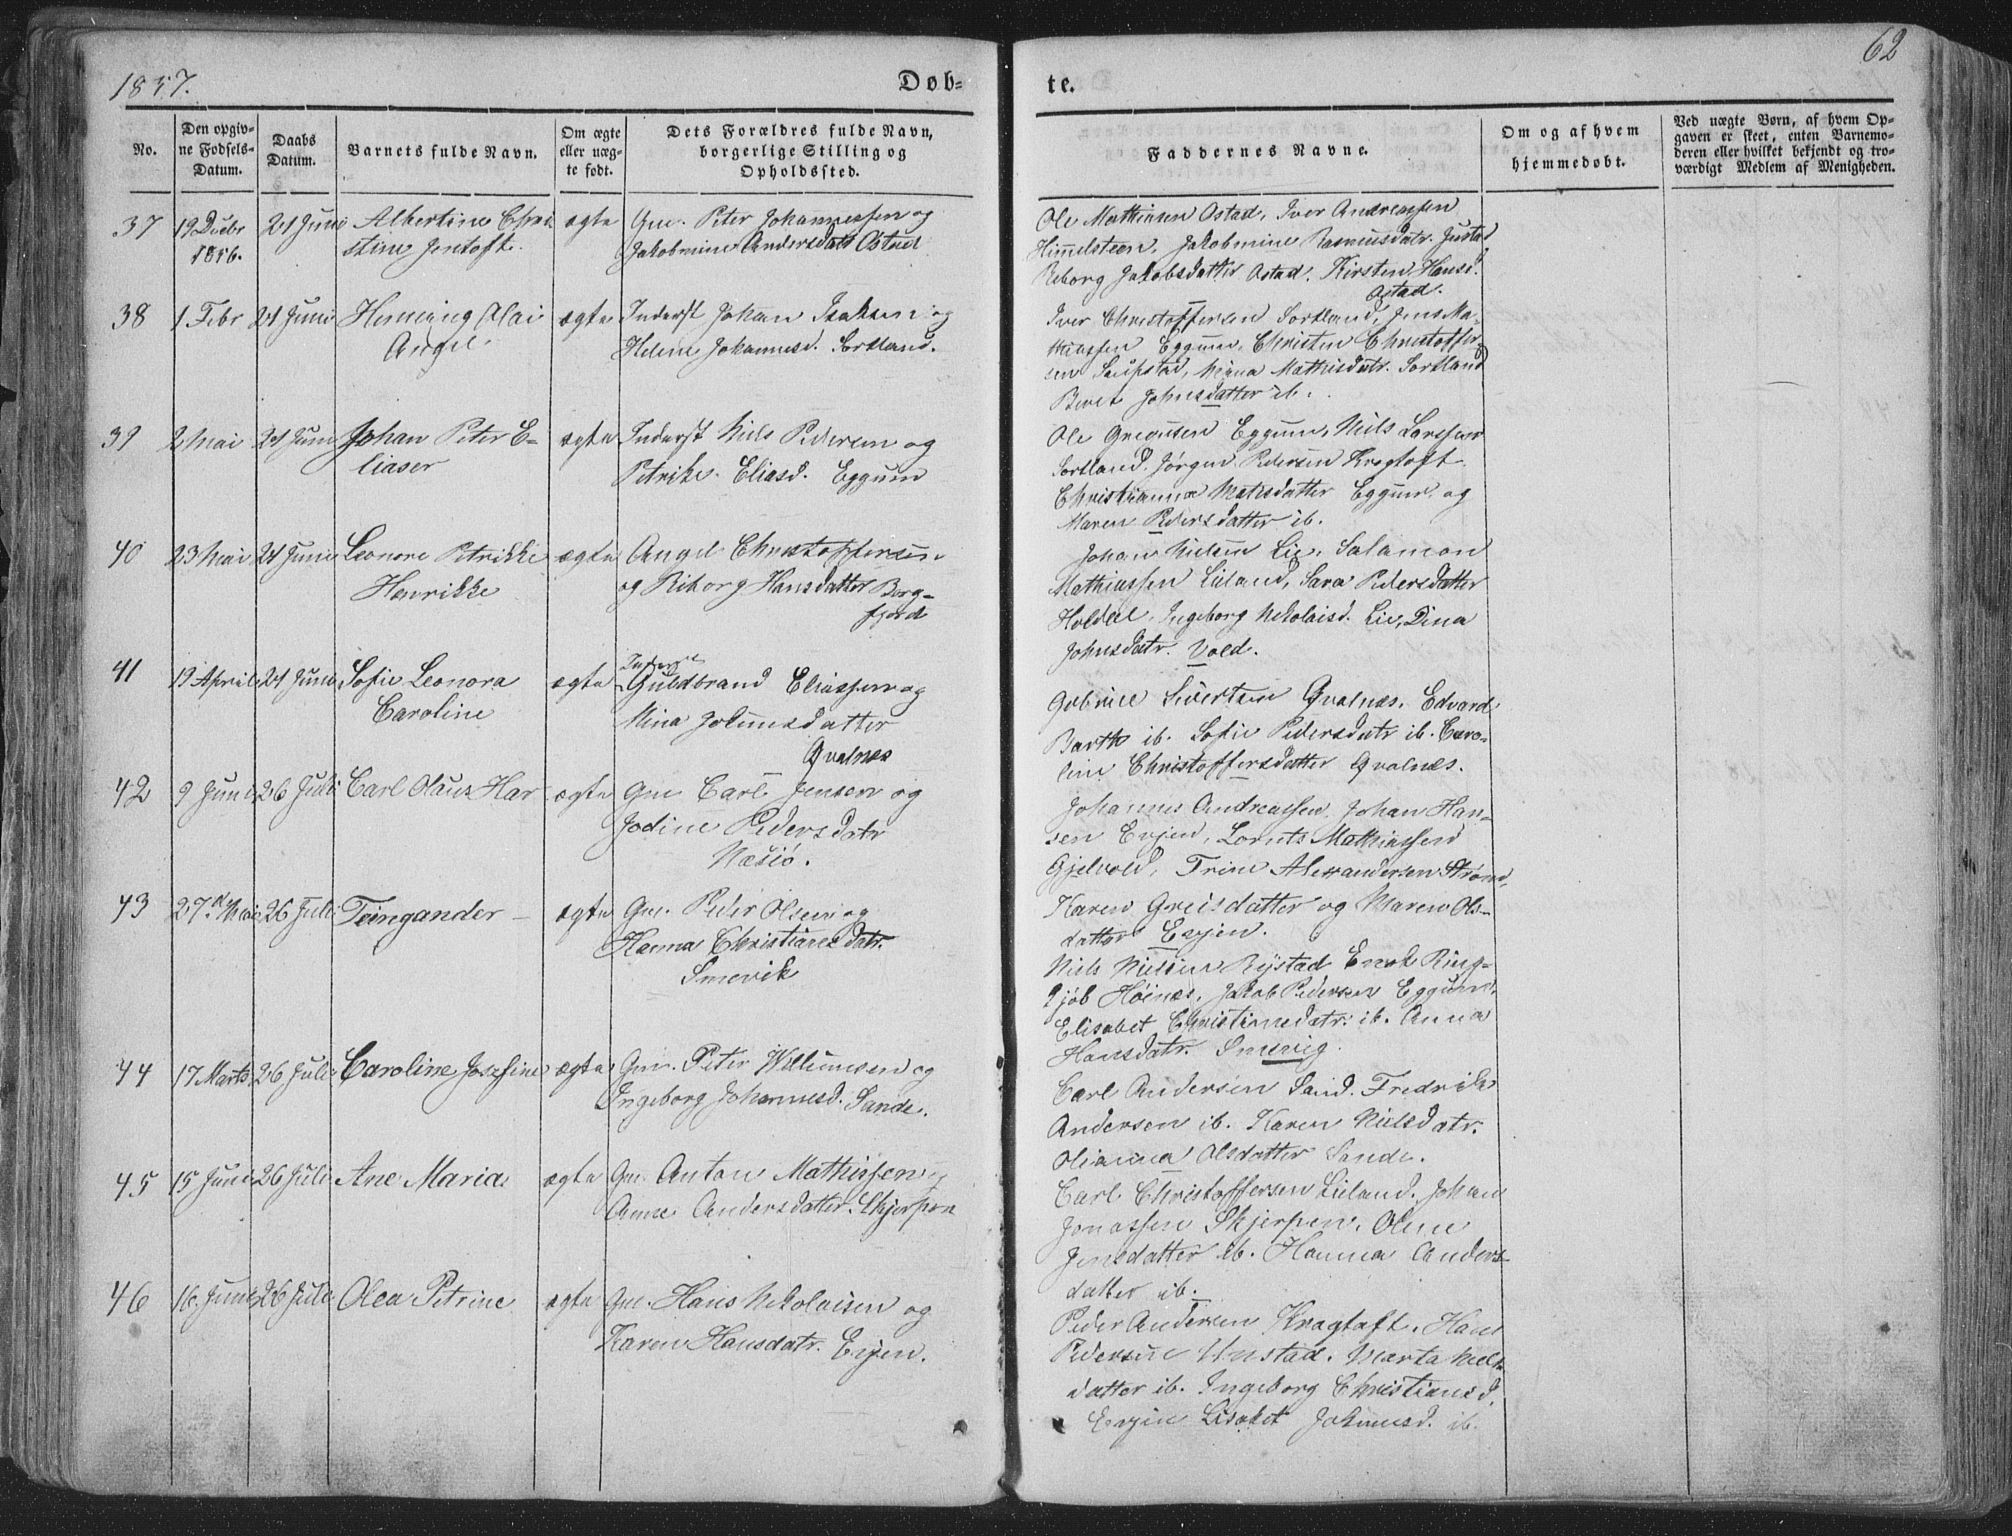 1857.
Døb-
te.
62
No.
Den opgiv-
ne Fødsels-
Datum.
Daabs
Datum.
Barnets fulde Navn.
Om ægte
eller uæg-
te født.
Dets Forældres fulde Navn,
borgerlige Stilling og
Opholdssted.
Faddernes Navne.
Om og af hvem
hjemmedøbt.
Ved uægte Børn, af hvem Op-
gaven er skeet, enten Barnemo-
deren eller hvilket bekjendt og tro-
værdigt Medlem af Menigheden.
37
19 Decbr
1856.
21 Juni
Albertine Chri
stine Jentoft.
ægte
Gm. Peter Johannessen og
Jakobmine Andersdatr Ostad
Ole Mathiasen Ostad, Iver Andreassen
Himelsteen, Jakobmine Rasmusdatr. Justad
Riborg Jakobsdatter Ostad. Kirsten Hansd.
Ostad.
38
1 Febr
21 Juni
Heming Olai
Angel.
ægte
Inderst Johan Isaksen og
Helene Johannesd. Sortland.
Iver Christoffersen Sortland, Jens Ma-
thiassen Eggum, Christen Christoffer-
sen Saupstad, Mina Mathisdatr. Sortland
Beret Johnsdatter ib.
39
2 Mai
21 Juni
Johan Peter E-
liaser
ægte
Inderst Niels Pedersen og
Petrike Eliasd. Eggum
Ole Gregusen Eggum, Niels Larssen
Sortland. Jørgen Pedersen Kragtoft.
Christianna Matisdatter Eggum og
Maren Pedersdatter ib.
40
23 Mai
21 Juni
Leonore Petrikke
Henrikke
ægte
Angel Christoffersen
og Riborg Hansdatter Borg-
fjord
Johan Nielsen Lie, Salamon
Mathiassen Lieland, Sara Pedersdatter
Holdel, Ingeborg Nikolaisd. Lie, Dina
Johnsdatr. Vold.
41
19 April
21 Juni
Sofie Leonora
Caroline
ægte
Inderst
Guldbrand Eliassen og
Mina Johnnsdatter
Qvalnæs
Gabriel Sivertsen Qvalnæs, Edvard
Barth ib. Sofie Pedersdatr ib. Caro-
line Christoffersdatter Qvalnæs.
42
9 Juni
26 Juli
Carl Olaus Har
ægte
Gm Carl Jensen og
Jodine Pedersdatr
Næsiø.
Johannes Andreassen, Johan Han-
sen Evjen, Lornts Mathiassen
Gjelvold, Trine Alexandersen Strømd,
Karen Greisdatter og Maren Ols-
datter Evjen.
43
27d Mai
26 Juli
Teingander
ægte
Gm. Peder Olsen og
Hanna Christiansdatr.
Smevik
Niels Nielsen Rystad Enok Ring-
Hoinæs, Jakob Pedersen Eggum,
Elisabet Christiansdatr. ib. Anna
Hansdatr. Smevig.
44
17 Marts
26 Juli
Caroline Josefine
ægte
Gm. Peter Willumsen og
Ingeborg Johannesd. Sande.
Carl Andersen Sand. Fredrik
Andersen ib. Karen Nielsdatr.
Olianna Olsdatter Sande.
45
15 Juni
26 Juli
Ane Maria
ægte
Gm. Anton Mathissen og
Anne Andersdatter. Skjerpen
Carl Christoffersen Lieland. Johan
Jonassen Skjerpen, Oline
Jensdatter ib. Hanna Anders-
datter ib.
46
16 Juni
26 Juli
Olea Petrine
ægte
Gm. Hans Nikolaisen og
Karen Hansdatr. Evjen.
Peder Andersen Kragtoft. Hans
Pedersen Unstad. Marta Niels-
datter ib. Ingeborg Christiansd.
Evjen Lisabet Johnnesd. ib.